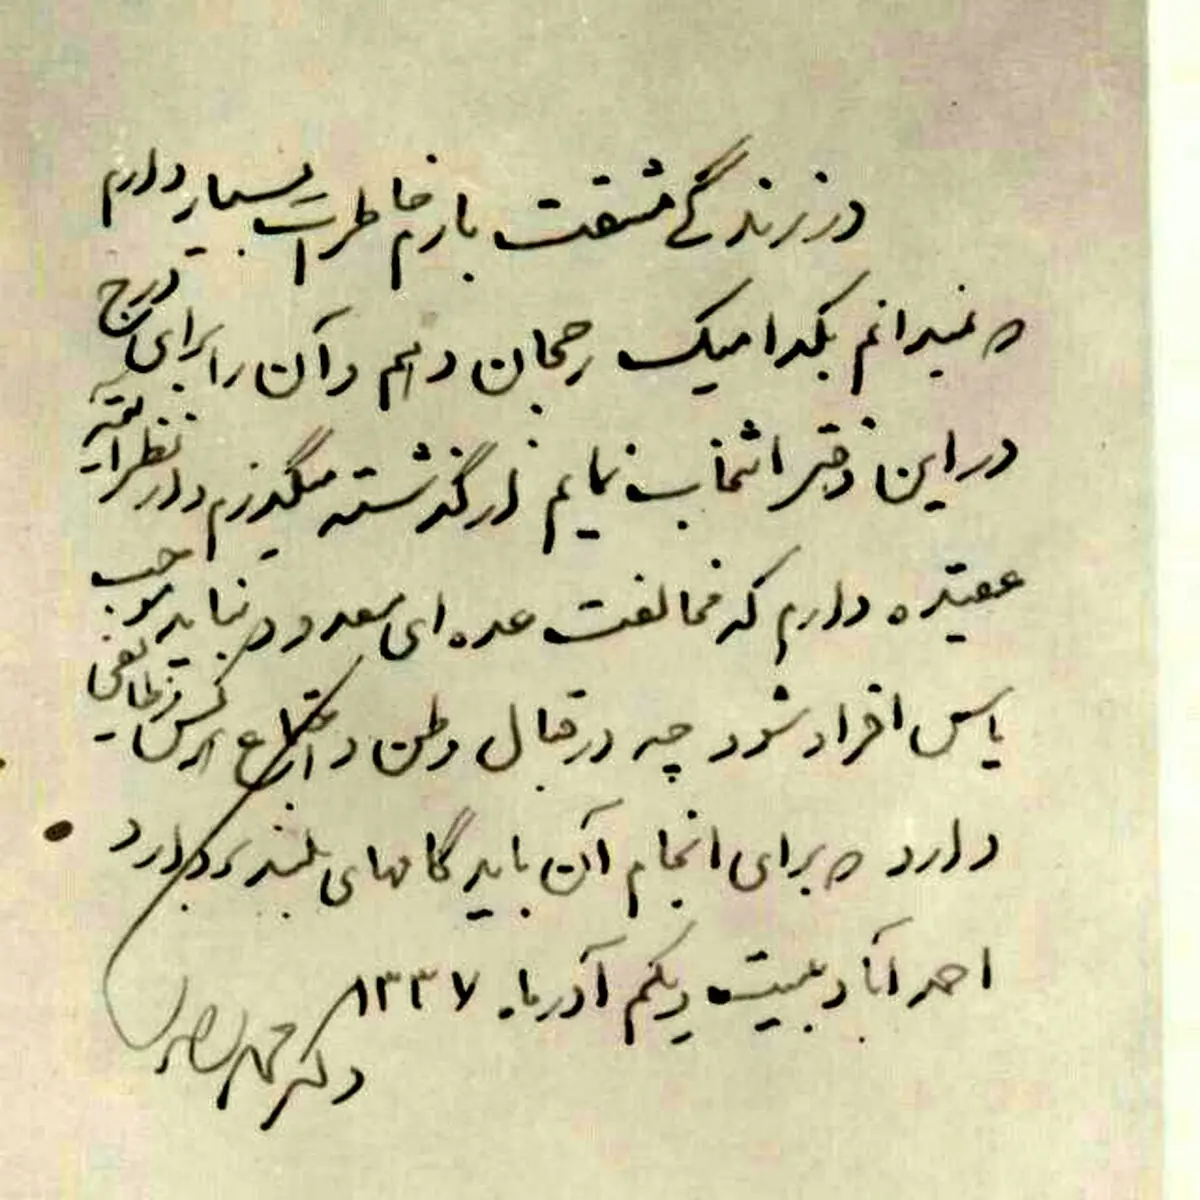 در زندگی مشقت بارم خاطرات بسیار دارم
و نمیدانم بکدامیک رجحان دهم و آن را برای درج
در این دفتر انتخاب نمایم از گذشته میگذرم و از نظر آتیه
عقیده دارم که مخالفت عده ای معدود نباید موجب
یاس افراد شود چه در قبال وطن و اجتماع هر کس وظایفی
دارد و برای انجام آن باید گامهای بلند بردارد
احمد آباد بیست و یکم آذر ماه ۱۳۳۷
دکتر محمد مصدق